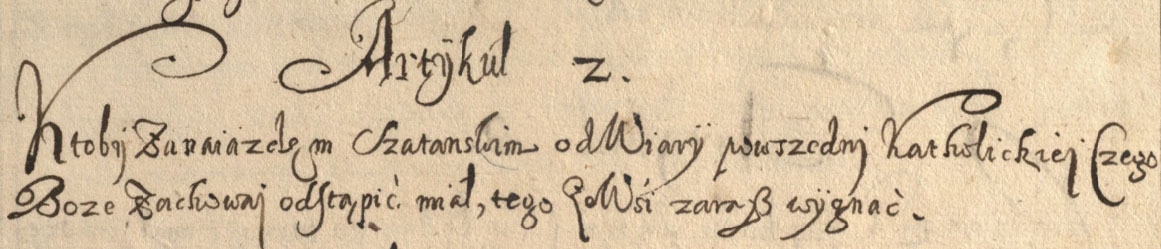 Artÿkuł 2.
Ktobÿ Zanaiazdem Szatanskim od Wiarÿ powszednÿ Katholickieÿ Czego
Boze Zachowaj odstąpić miał, tego ze Wśi zaraß wÿgnać.